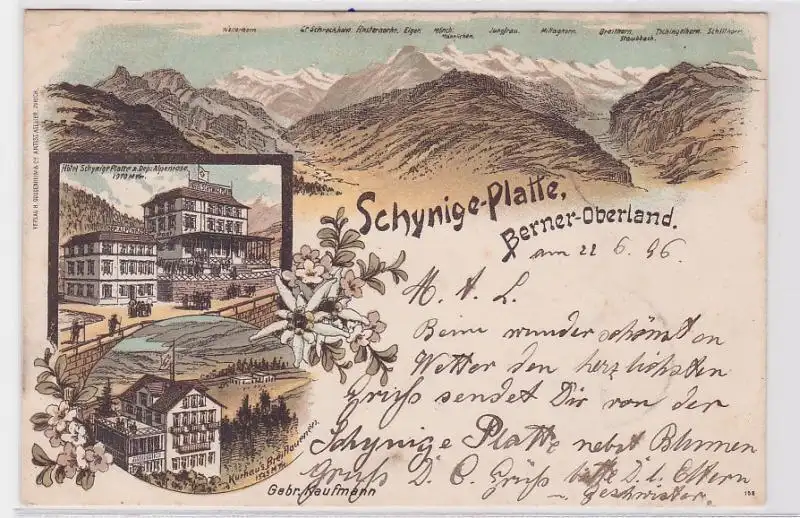 Wetterhorn. Gr. Schreckhorn. Finsteraarhr. Eiger. Mönch. Jungfrau. Mittaghorn. Breithorn. Tschingelhorn. Schilthorn.
Männlichen. Staubbach.
VERLAG H. GUGGENHEIM & Co ZÜRICH.
Hôtel Schynige Platte u. Dep. Alpenrose.
1970 M
Schynige-Platte,
Berner-Oberland.
am 22 6. 96
M. A. L.
Beim wunder schönst en
Wetter den herzlichsten
Gruss sendet Dir von der
Schynige Platte nebst Blumen
Gruss D. C. Grüss bitte D. l. Eltern
u. Geschwister.
Kurhaus Breitlauenen.
Gebr. Kaufmann